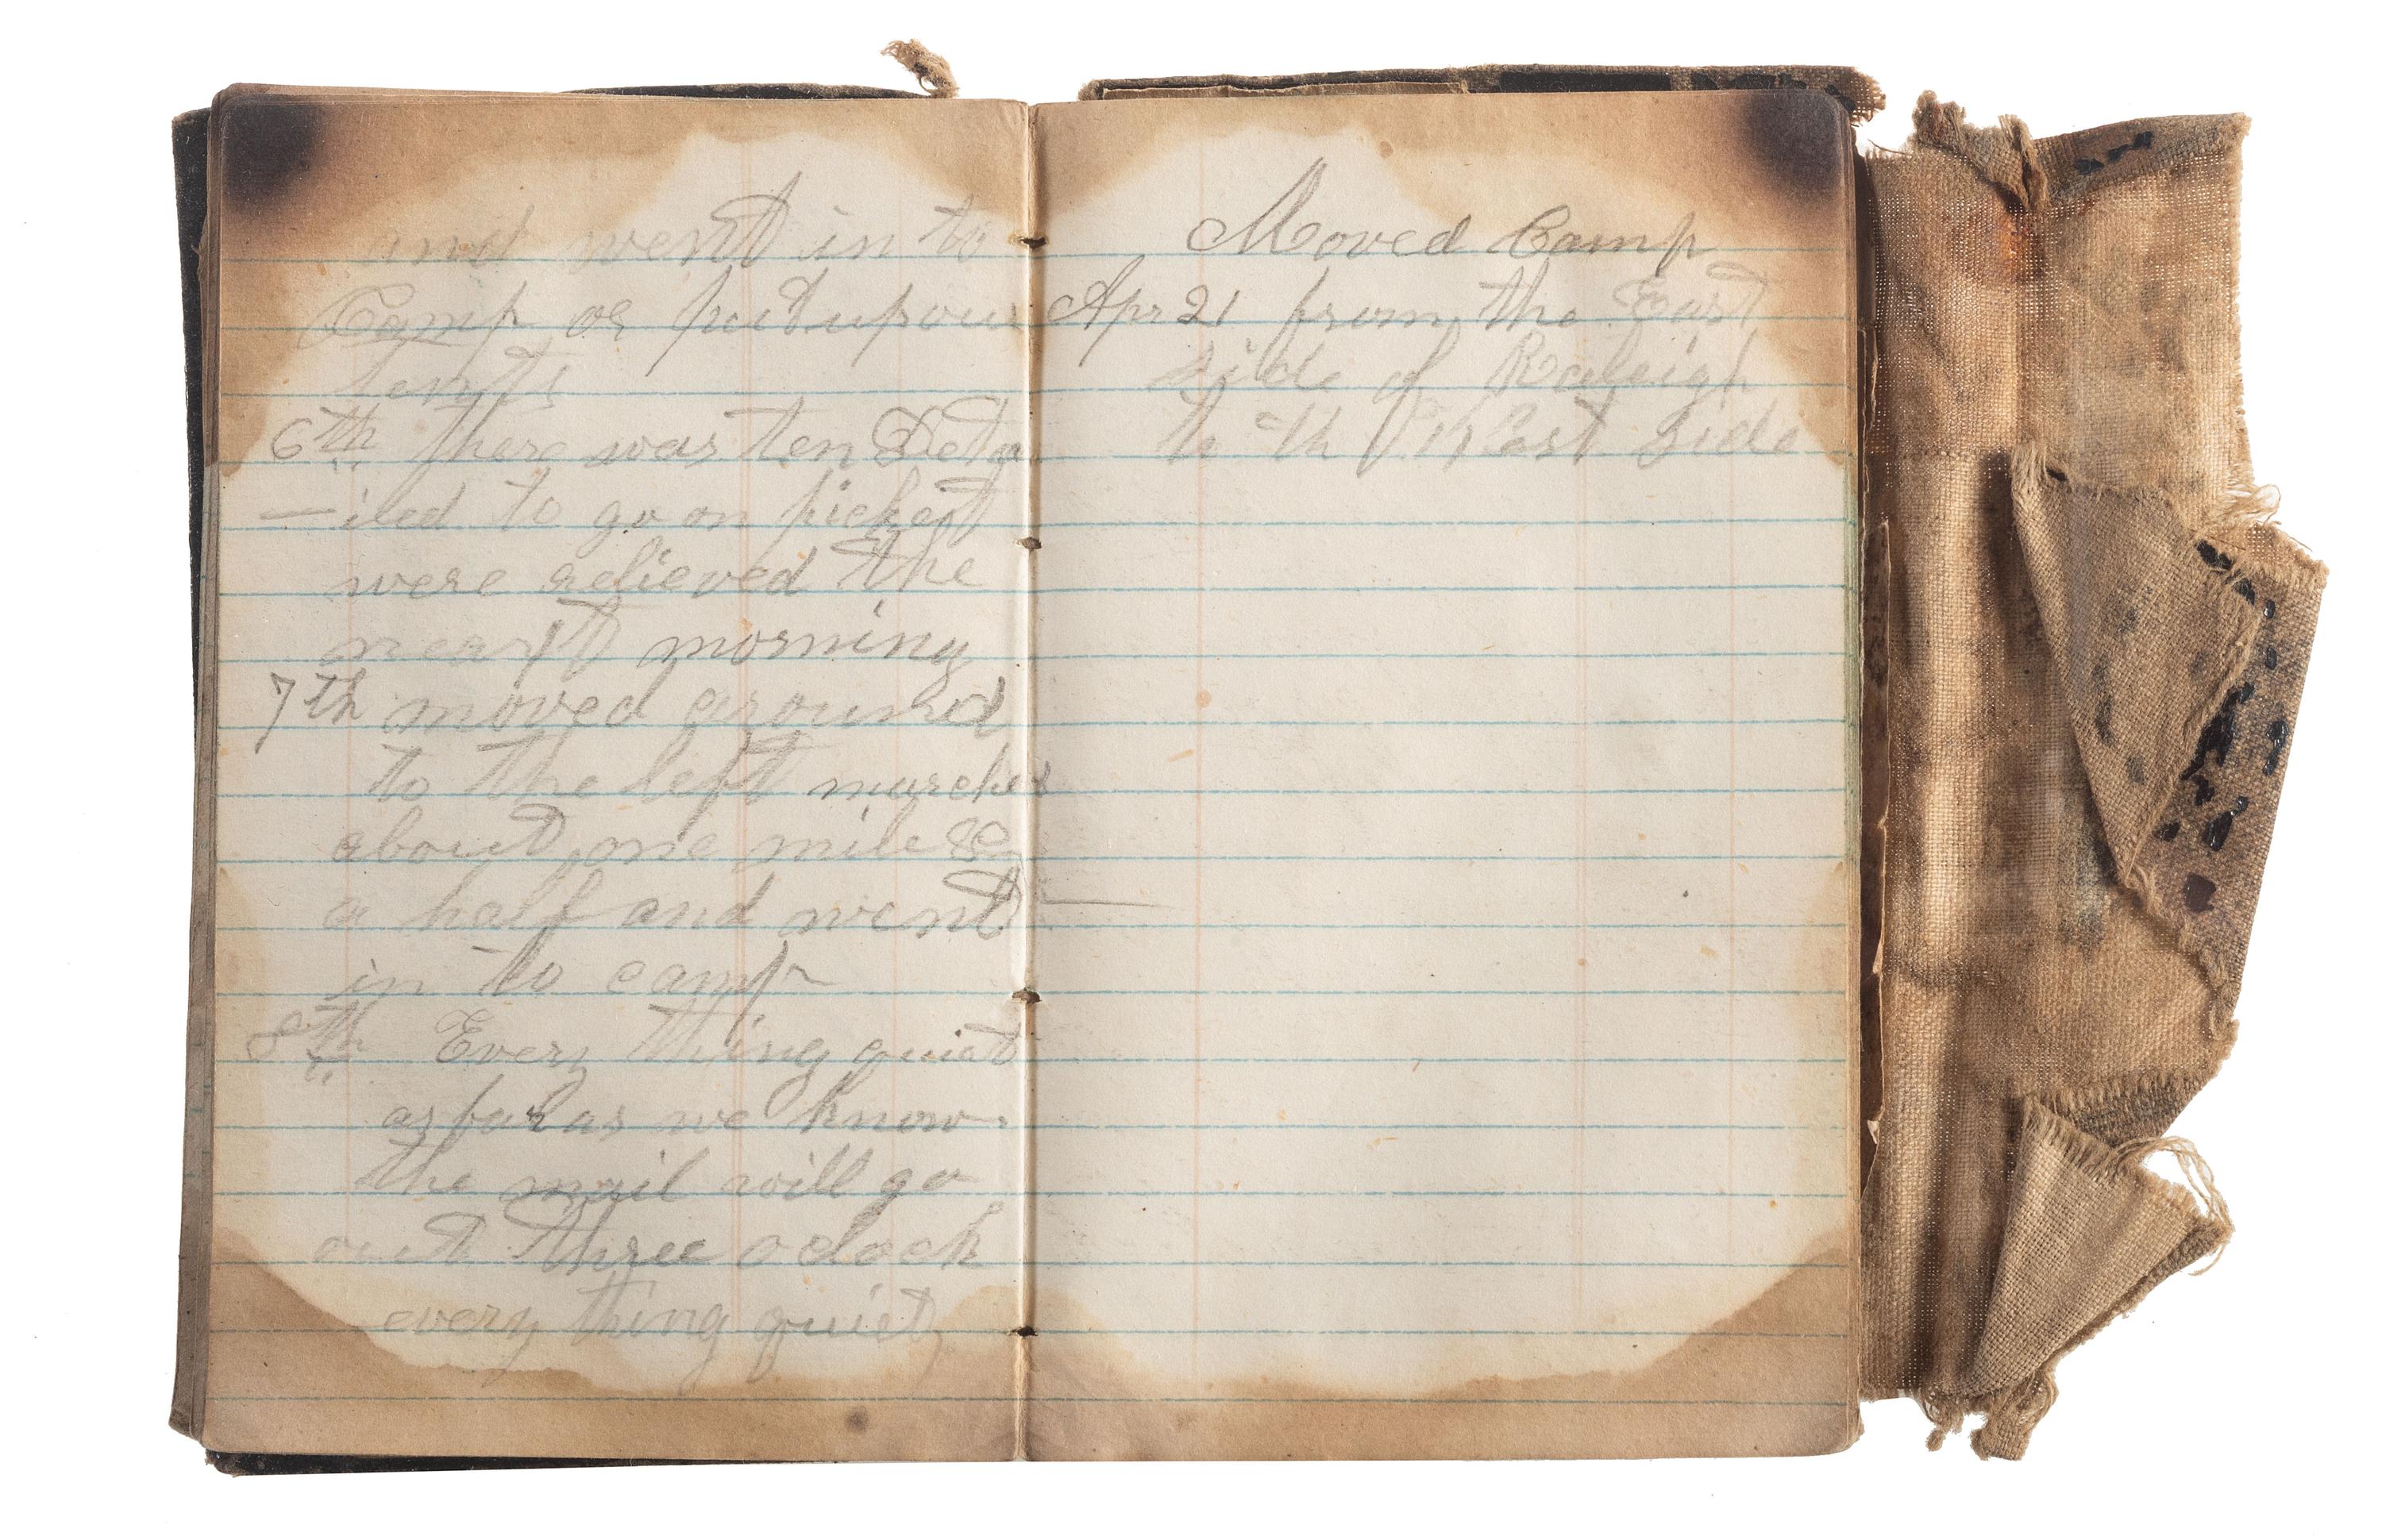 and went in to
Camp or put up our
tents
6th there was ten Deta
—iled to go on picket
were relieved the
next morning
7th moved ground
to the left marched
about one mile &
a half and went
in to camp
8th Every thing quiet
as far as we know.
the mail will go
out three o clock
every thing quiet
Moved Camp
Apr 21 from the East
side of Raleigh
to the West Side